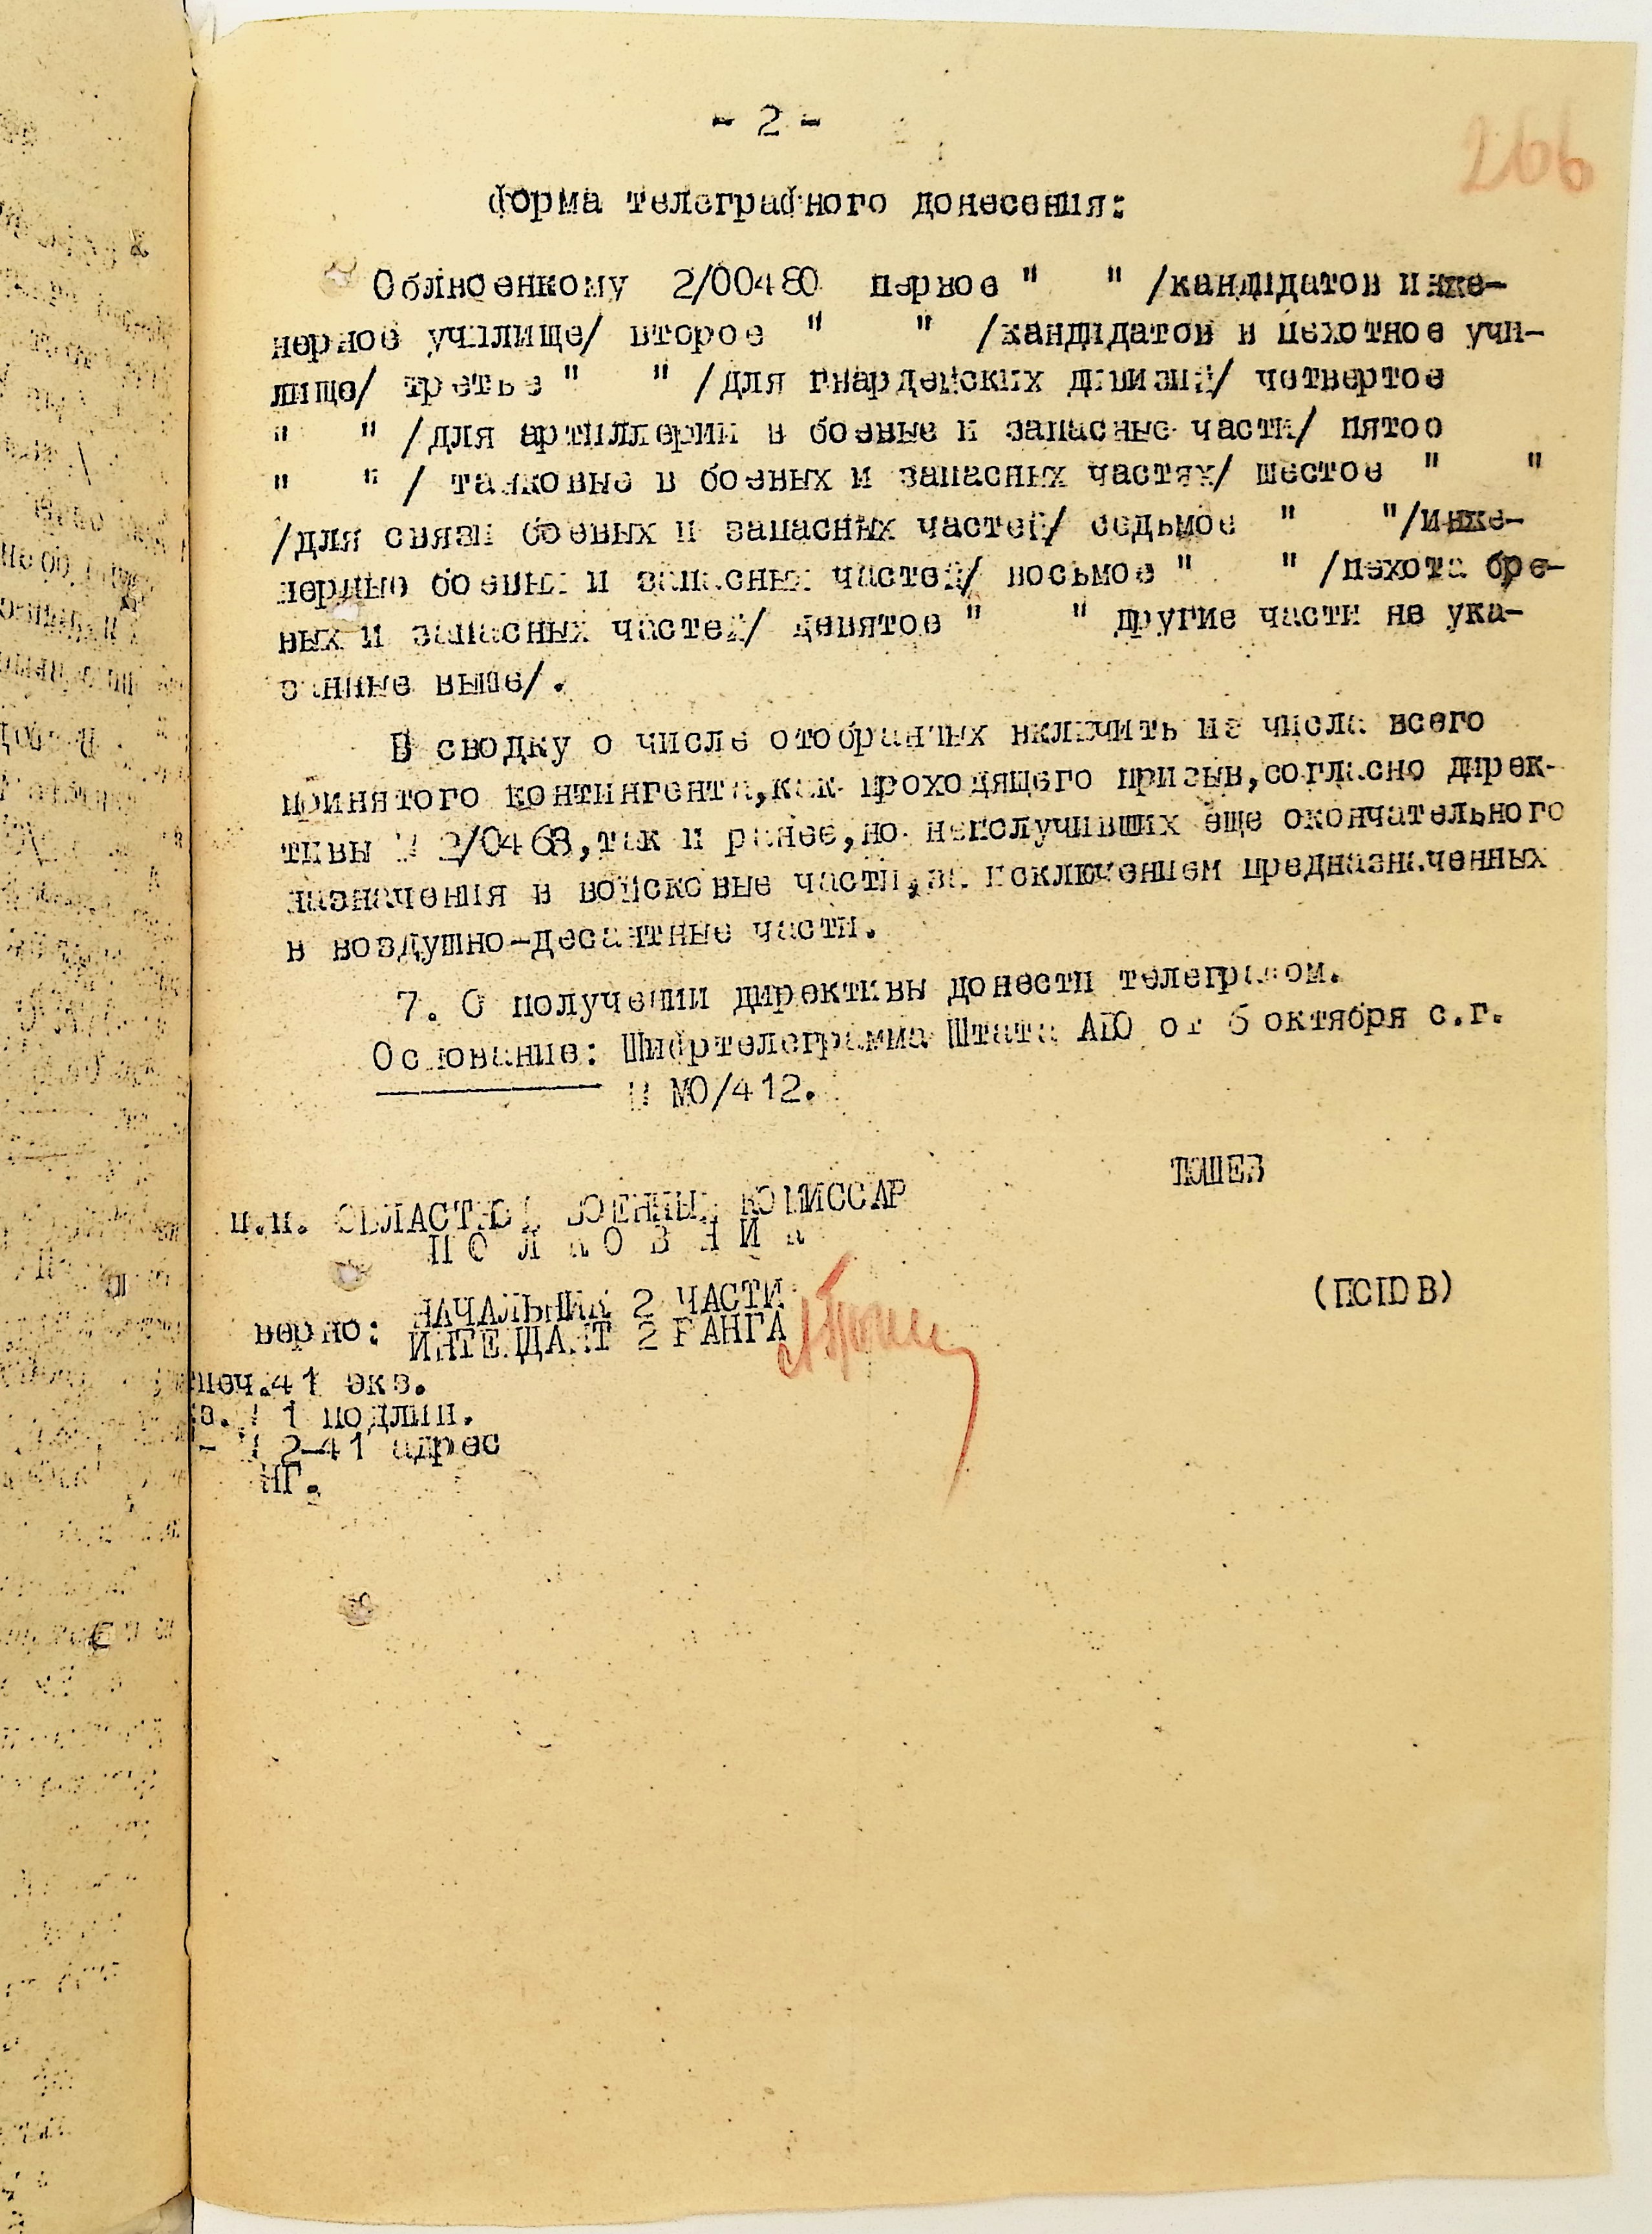 - 2 -
266
форма телеграфного донесения:
Облвоенкому 2/00480 первое " " /кандидатов инже-
нерное училище/ второе " " /кандидатов в пехотное учи-
лище/ третье " " /для гвардейских дивизий/ четвертое
" " /для артиллерии в боевые и запасные части/ пятое
" " / танковые в боевых и запасных частях/ шестое " "
/для связи боевых и запасных частей/ седьмое " "/инже-
нерные боевых и запасных частей/ восьмое " " /пехота
вых и запасных частей/ девятое " " другие части не ука-
занные выше/.
В сводку о числе отобранных включить из числа всего
принятого контингента,как проходящего призыв,согласно дирек-
тивы № 2/0468,так и ранее,но неполучивших еще окончательного
назначения в войсковые части,за исключением предназначенных
в воздушно-десантные части.
7. О получении директивы донести телеграфом.
Основание: Шифртелеграмма Штата от 5 октября с.г.
№ МО/412.
ОБЛАСТНОЙ ВОЕННЫЙ КОМИССАР
ПОЛКОВНИК
верно: НАЧАЛЬНИК 2 ЧАСТИ
ИНТЕНДАНТ 2 РАНГА
41 экз.
1 подлин.
- № 2-41 адрес
НГ.